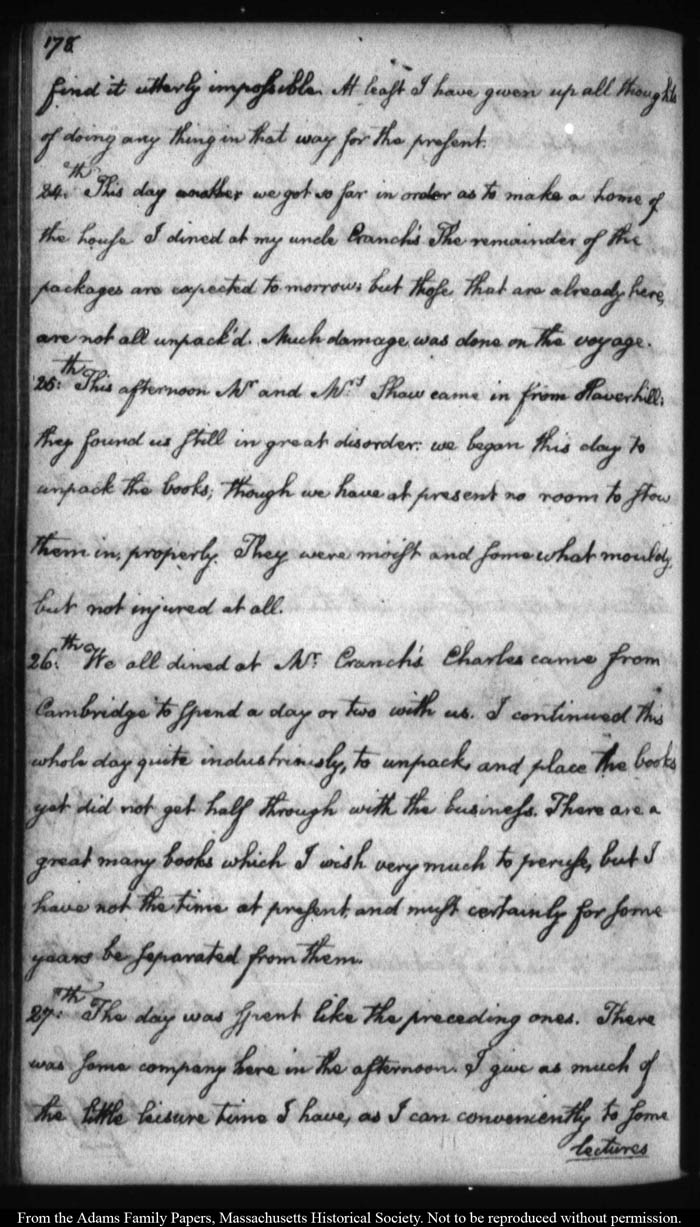 178
find it utterly impossible. At least I have given up all thoughts
of doing any thing in that way for the present.
24.th This day we got so far in order as to make a home of
the house I dined at my uncle Cranch's The remainder of the
packages are expected to morrow: but those that are already here,
are not all unpack'd. Much damage was done on the voyage.
25.th This afternoon Mr. and Mrs. Shaw came in from Haverhill:
they found us still in great disorder: we began this day to
unpack the books; though we have at present no room to stow
them in, properly. They were moist and somewhat mouldy,
but not injured at all.
26.th We all dined at Mr. Cranch's Charles came from
Cambridge to spend a day or two with us. I continued this
whole day quite industriously, to unpack, and place the books
yet did not get half through with the business. There are a
great many books which I wish very much to peruse, but I
have not the time at present, and must certainly for some
years be separated from them.
27.th The day was spent like the preceding ones. There
was some company here in the afternoon. I give as much of
the little leisure time I have, as I can conveniently to some
lectures
From the Adams Family Papers, Massachusetts Historical Society. Not to be reproduced without permission.